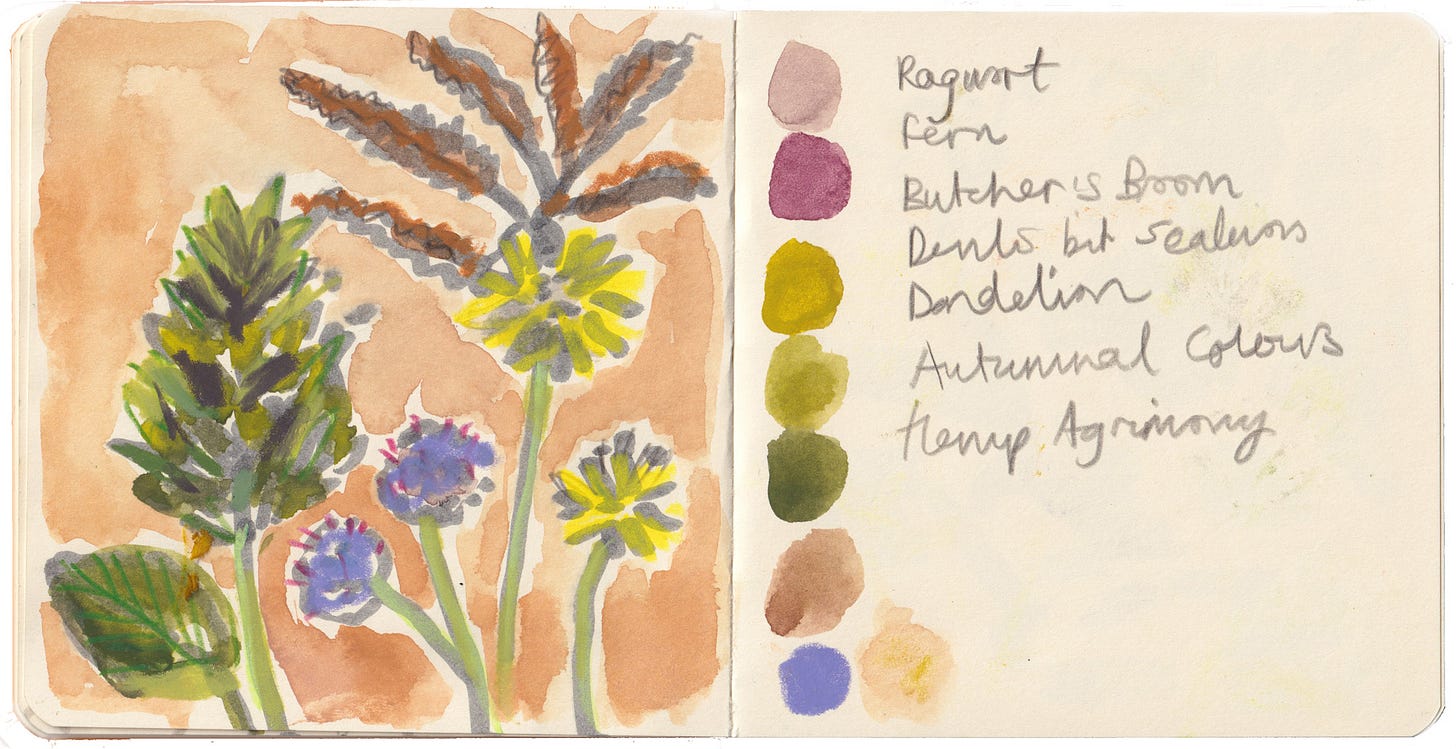 Ragwort
Fern
Butcher's Broom
bit
Dandelion
Autumnal Colours
Hemp Agrimony